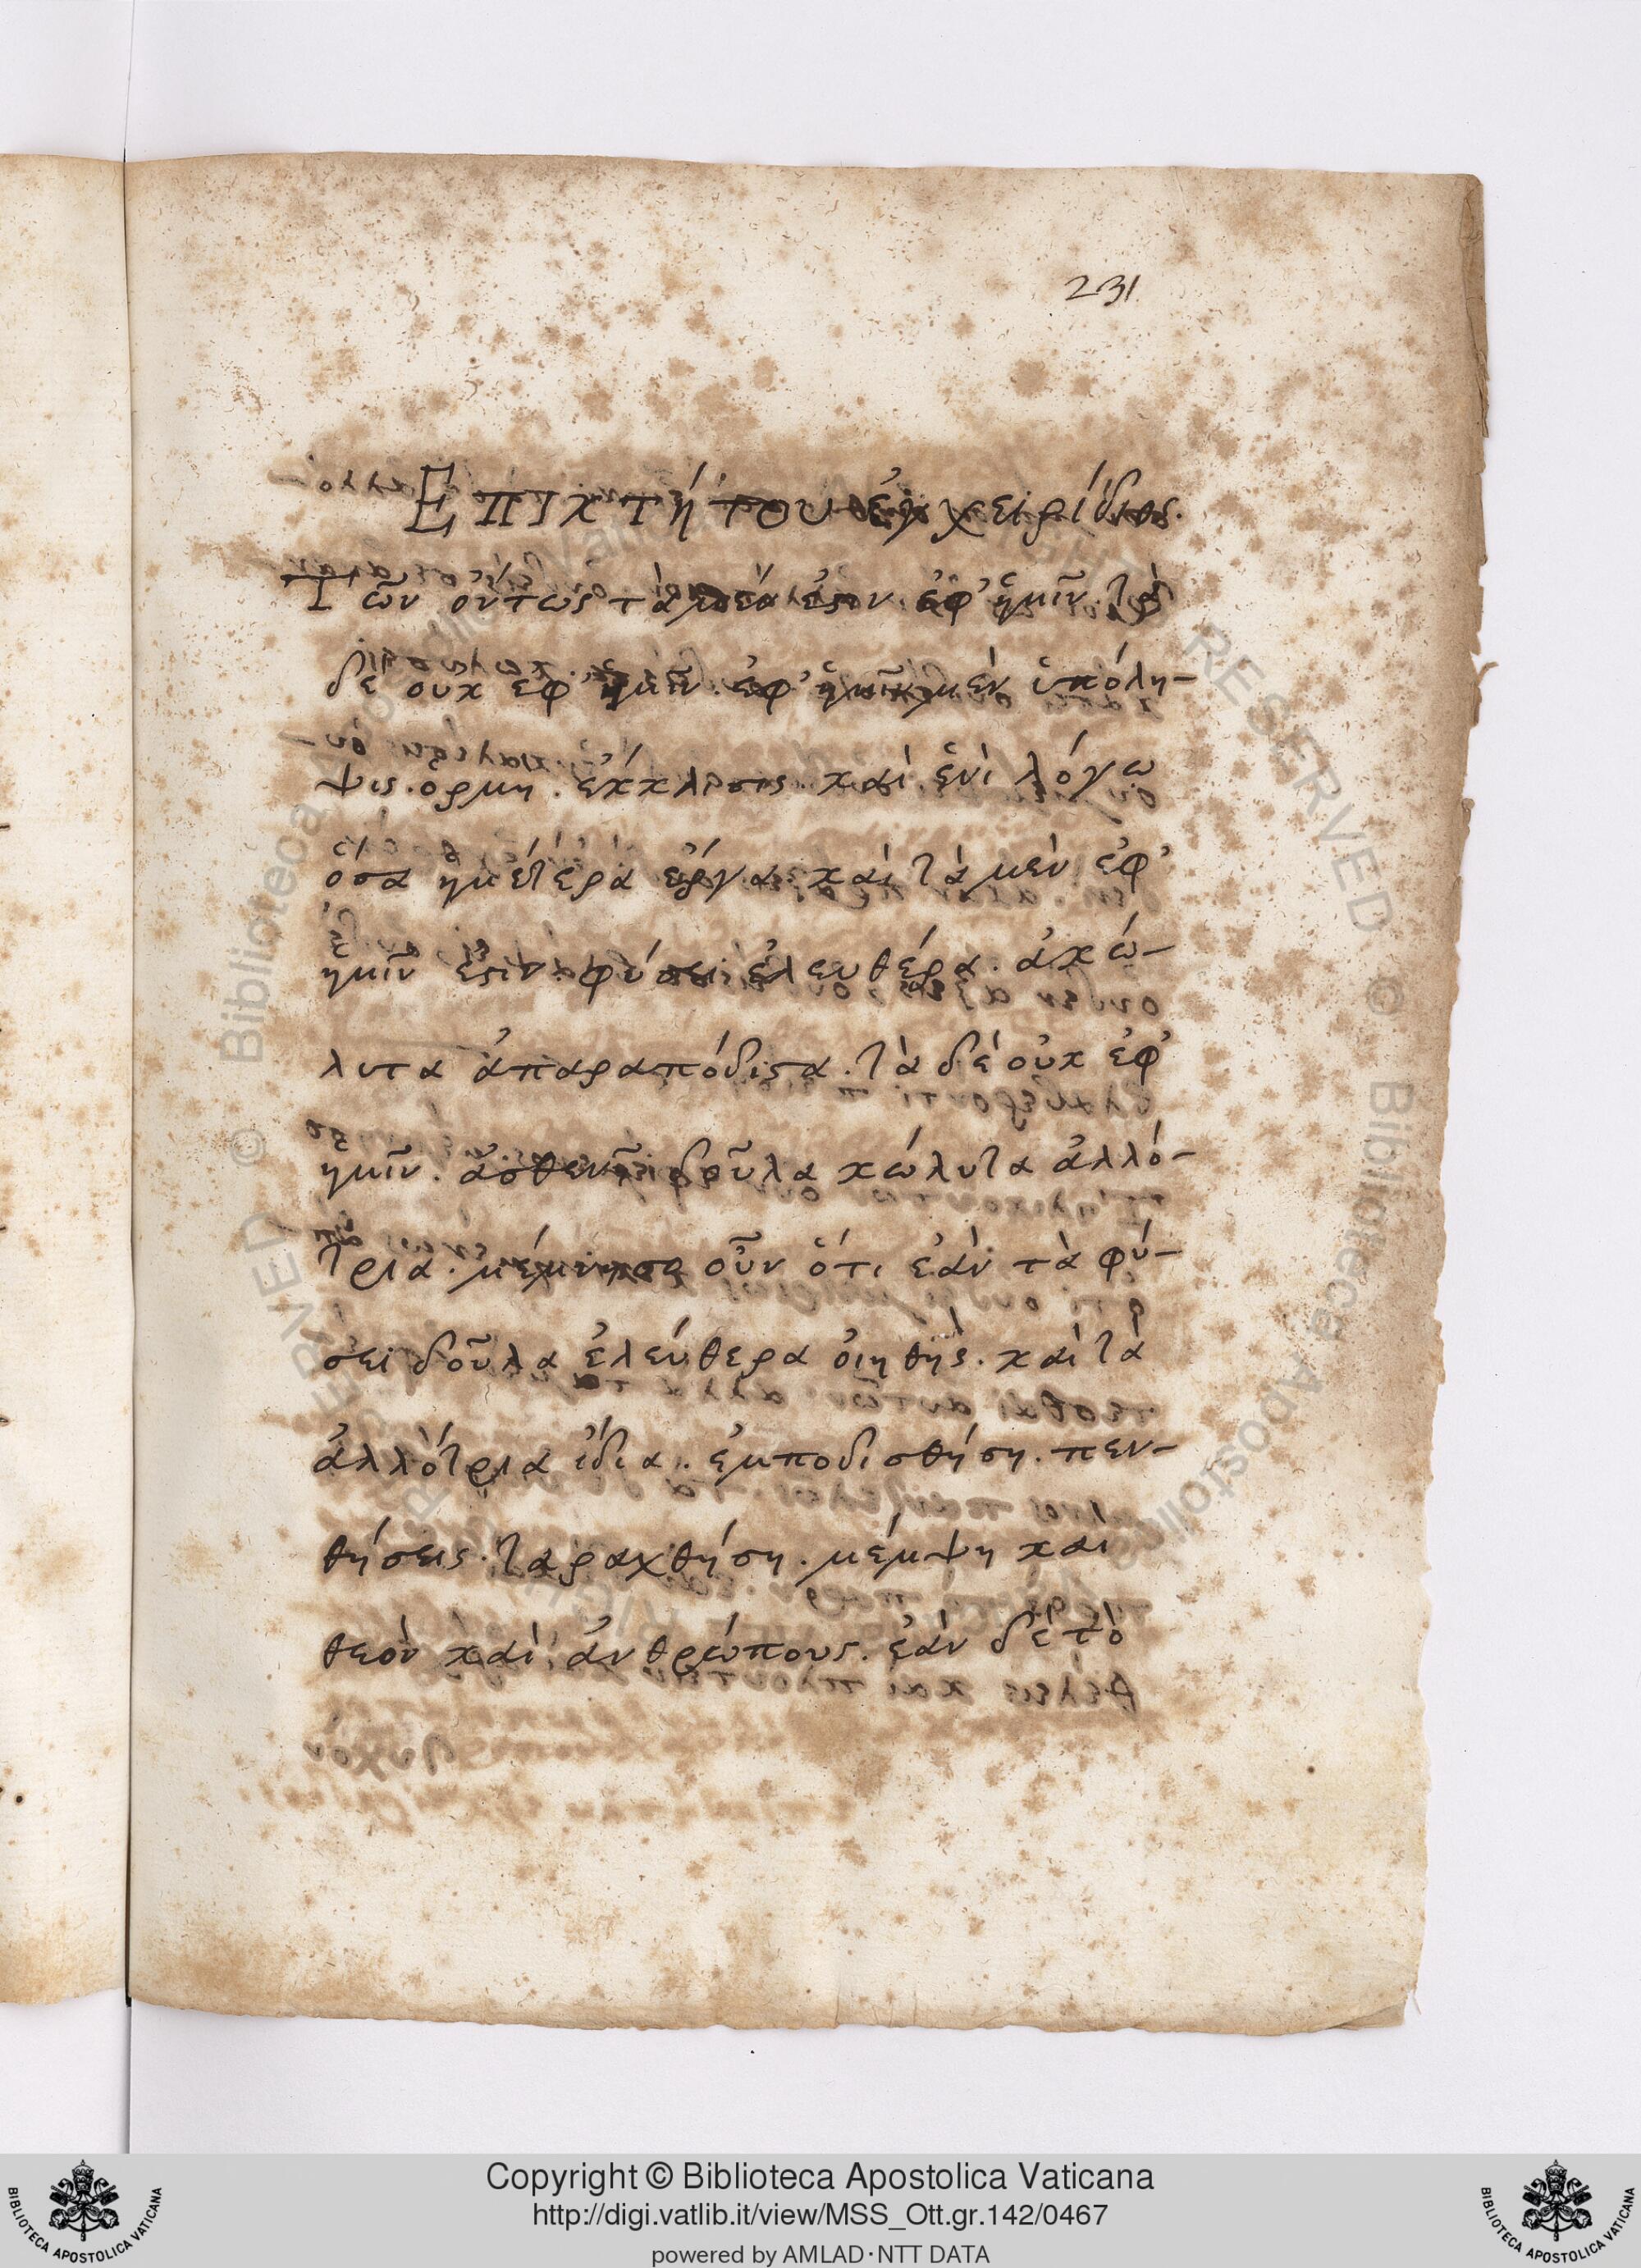 231
Επικτήτου ἐγχειρίδιον.
Τῶν ὄντων τὰ μὲν ἐστιν ἐφ' ἡμῖν. τὰ
δὲ οὐκ ἐφ' ἡμῖν. ἐφ' ἡμῖν μὲν ὑπόλη-
ψις. ορμη. ἔκκλισις. καὶ ἑνὶ λόγω
ὅσα ημέτερα ἔργα. καὶ τὰ μὲν ἐφ'
ἡμῖν ἐστιν. φύσει ἐλευθέρα. ἀκώ-
λυτα ἀπαραπόδιστα. τὰ δὲ οὐκ ἐφ'
ημῖν. ἀσθενῆ δοῦλα κώλυτα ἀλλό-
τρια. μέμνησο οὖν ὅτι ἐὰν τὰ φύ-
σει δοῦλα ἐλεύθερα οἰηθῆς. καὶ τὰ
ἀλλότρια ἴδια. ἐμποδισθήση. πεν-
θήσεις. ταραχθήση. μέμψη καὶ
θεὸν καὶ ἀνθρώπους. ἐὰν δὲ τὸ
Copyright © Biblioteca Apostolica Vaticana
http://digi.vatlib.it/view/MSS_Ott.gr.142/0467
powered by AMLAD·NTT DATA
BIBLIOTECA APOSTOLICA VATICANA
BIBLIOTECA APOSTOLICA VATICANA